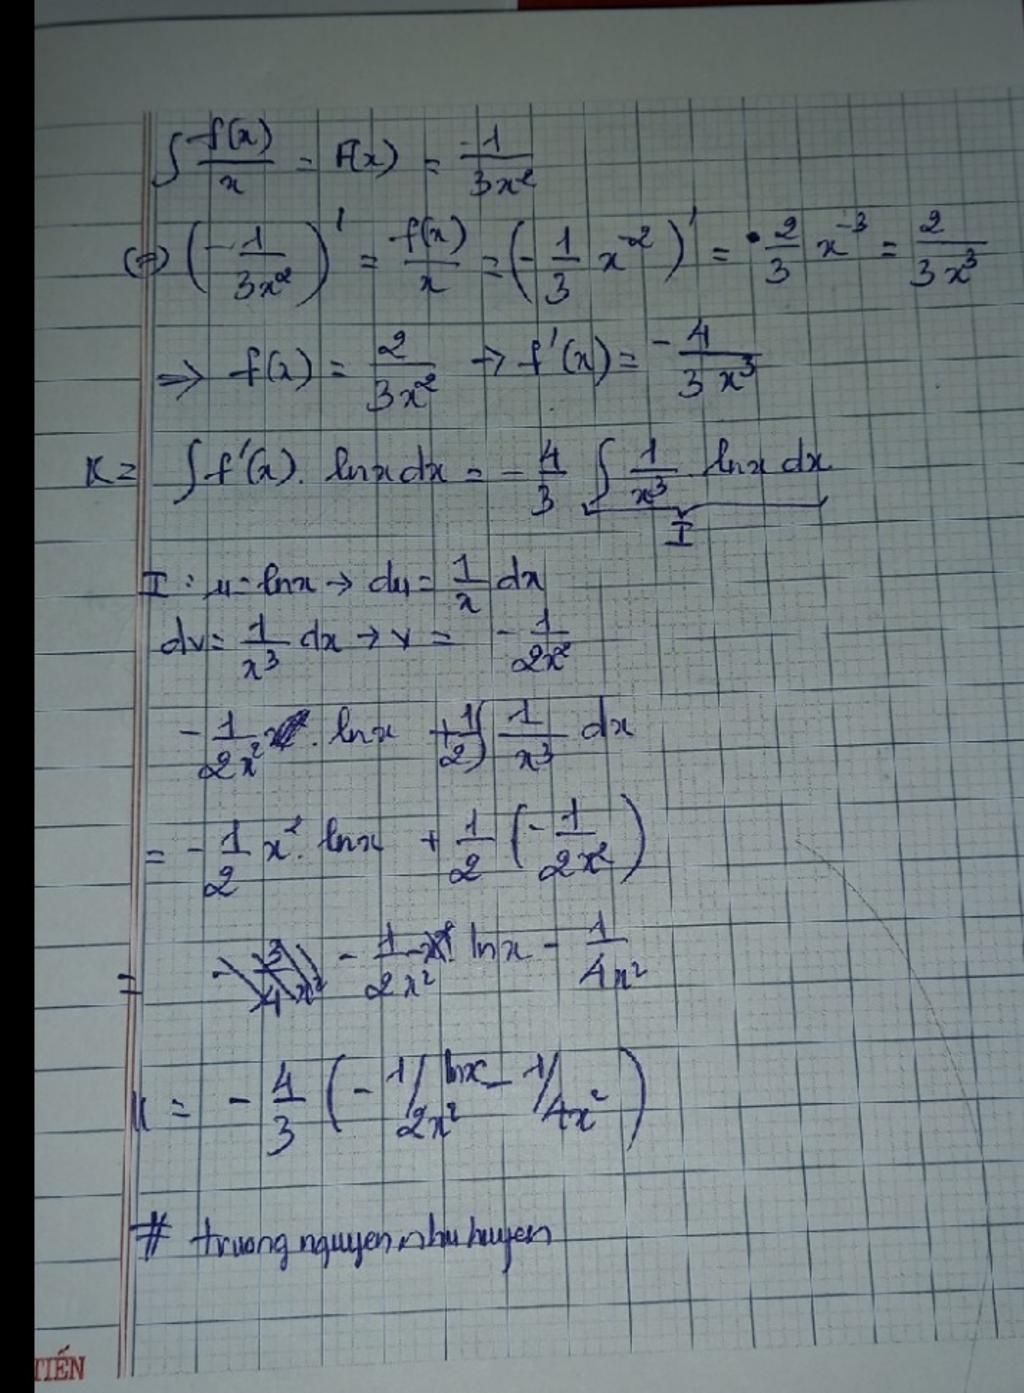 ∫ f(x)/x = F(x) = -1/3x²
(=) (-1/3x²)' = f(x)/x = (-1/3 x⁻²)' = 2/3 x⁻³ = 2/3x³
=> f(x) = 2/3x² → f'(x) = -4/3x³
K = ∫ f'(x). lnx dx = -4/3 ∫ 1/x³ lnx dx
I
I : u = lnx → du = 1/x dx
dv = 1/x³ dx → v = -1/2x²
-1/2x² . lnx + 1/2 ∫ 1/x³ dx
= -1/2 x². lnx + 1/2 (-1/2x²)
= -1/2x² lnx - 1/4x²
K = -4/3 (-1/2x² lnx - 1/4x²)
# truongnguyennhuhuyen
TIẾN